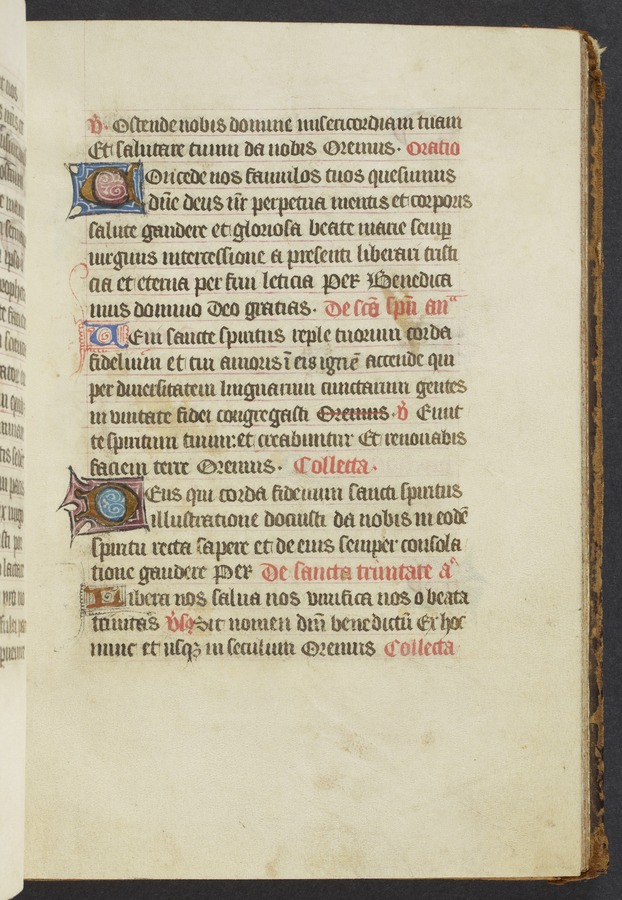 v̄. Ostende nobis domine misericordiam tuam
Et salutare tuum da nobis Oremus. Oratio
Concede nos famulos tuos quesumus
dn̄e deus nr̄ perpetua mentis et corporis
salute gaudere et gloriosa beate marie semp
uirginis intercessione a presenti liberari tristi
cia et eterna perfrui leticia Per Benedica
mus domino Deo gratias. De sc̄o spū an̄
Ueni sancte spiritus reple tuorum corda
fidelium et tui amoris ī eis ignē accende qui
per diuersitatem linguarum cunctarum gentes
in vnitate fidei congregasti Oremus. v̄ Emit
te spiritum tuum: et creabuntur Et renouabis
faciem terre Oremus. Collecta.
Deus qui corda fidelium sancti spiritus
illustratione docuisti da nobis in eodē
spiritu recta sapere et de eius semper consola
tione gaudere Per De sancta trinitate a
Libera nos salua nos viuifica nos o beata
trinitas v̄s Sit nomen dn̄i benedictū Ex hoc
nunc et usqꝫ in seculum Oremus Collecta